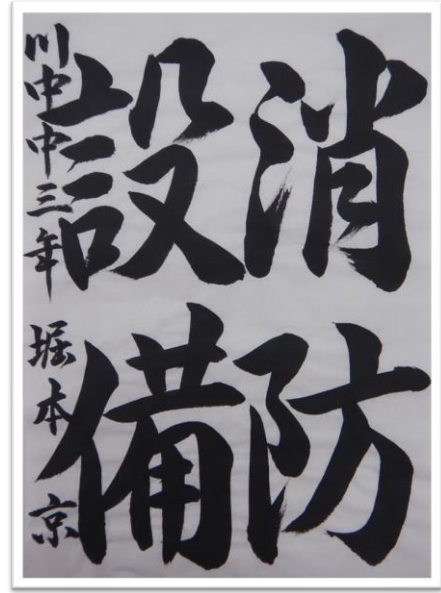 消防
設備
川中中三年 堀本京